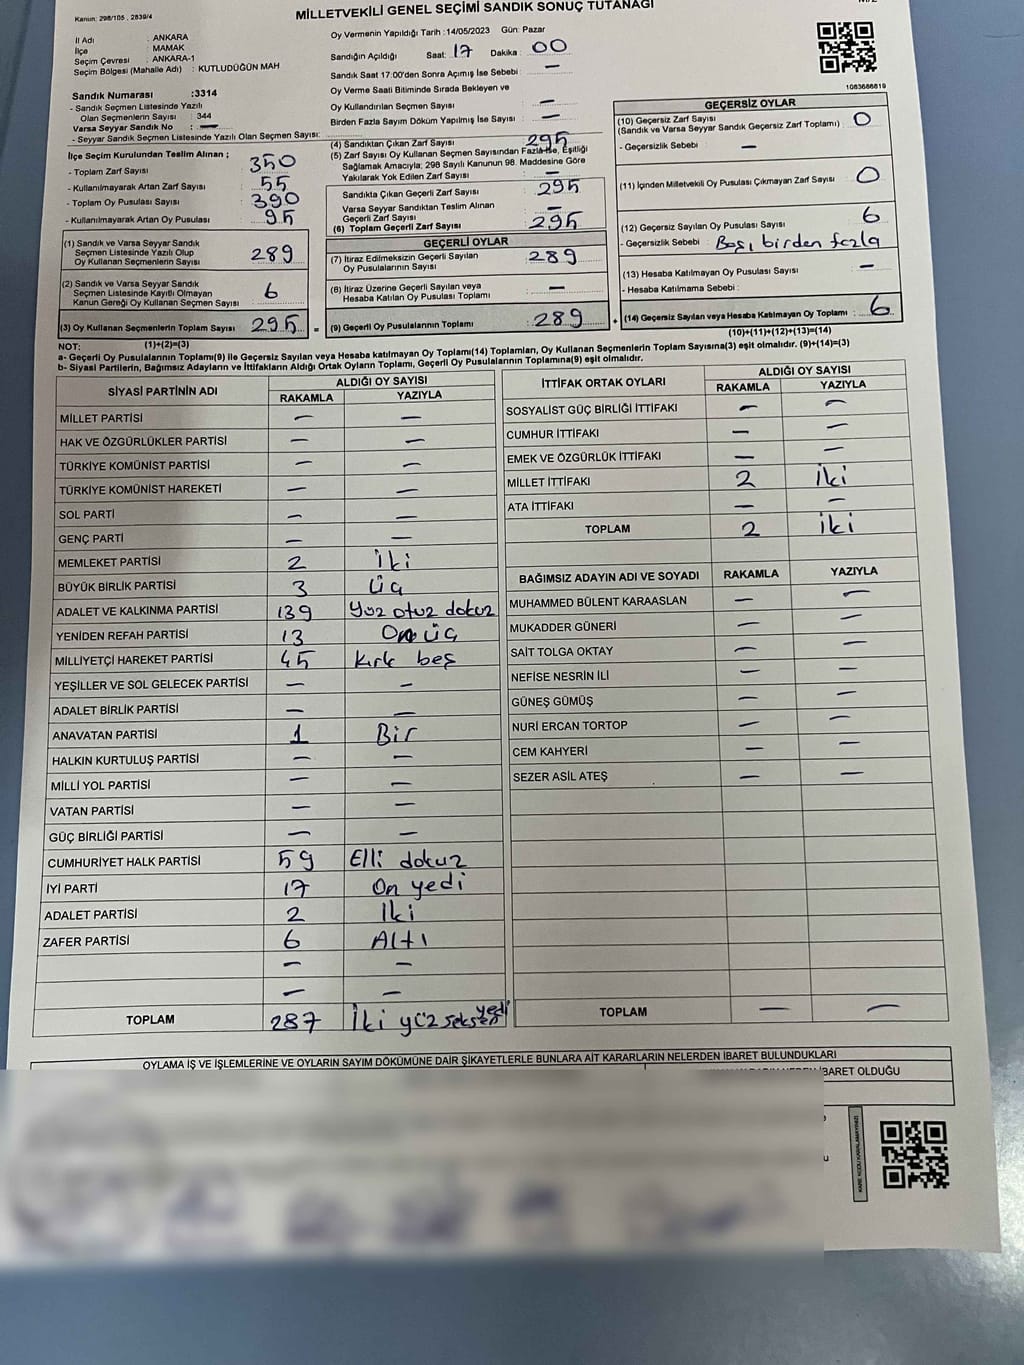 Kanun: 298/105 , 2839/4
MİLLETVEKİLİ GENEL SEÇİMİ SANDIK SONUÇ TUTANAĞI
İl Adı : ANKARA
İlçe : MAMAK
Seçim Çevresi : ANKARA-1
Seçim Bölgesi (Mahalle Adı) : KUTLUDÜĞÜN MAH
Sandık Numarası :3314
- Sandık Seçmen Listesinde Yazılı
Olan Seçmenlerin Sayısı : 344
Varsa Seyyar Sandık No : —
- Seyyar Sandık Seçmen Listesinde Yazılı Olan Seçmen Sayısı:
İlçe Seçim Kurulundan Teslim Alınan ;
- Toplam Zarf Sayısı 350
- Kullanılmayarak Artan Zarf Sayısı 55
- Toplam Oy Pusulası Sayısı 390
- Kullanılmayarak Artan Oy Pusulası 95
(1) Sandık ve Varsa Seyyar Sandık
Seçmen Listesinde Yazılı Olup
Oy Kullanan Seçmenlerin Sayısı 289
(2) Sandık ve Varsa Seyyar Sandık
Seçmen Listesinde Kayıtlı Olmayan
Kanun Gereği Oy Kullanan Seçmen Sayısı 6
(3) Oy Kullanan Seçmenlerin Toplam Sayısı 295 =
Oy Vermenin Yapıldığı Tarih :14/05/2023 Gün: Pazar
Sandığın Açıldığı Saat: 17 Dakika : 00
Sandık Saat 17:00'den Sonra Açımış İse Sebebi : —
Oy Verme Saati Bitiminde Sırada Bekleyen ve
Oy Kullandırılan Seçmen Sayısı : —
Birden Fazla Sayım Döküm Yapılmış İse Sayısı : —
(4) Sandıktan Çıkan Zarf Sayısı 295
(5) Zarf Sayısı Oy Kullanan Seçmen Sayısından Fazla İse, Eşitliği
Sağlamak Amacıyla; 298 Sayılı Kanunun 98. Maddesine Göre
Yakılarak Yok Edilen Zarf Sayısı —
Sandıkta Çıkan Geçerli Zarf Sayısı 295
Varsa Seyyar Sandıktan Teslim Alınan
Geçerli Zarf Sayısı —
(6) Toplam Geçerli Zarf Sayısı 295
GEÇERLİ OYLAR
(7) İtiraz Edilmeksizin Geçerli Sayılan
Oy Pusulalarının Sayısı 289
(8) İtiraz Üzerine Geçerli Sayılan veya
Hesaba Katılan Oy Pusulası Toplamı —
(9) Geçerli Oy Pusulalarının Toplamı 289 +
M/2
1083686819
GEÇERSİZ OYLAR
(10) Geçersiz Zarf Sayısı
(Sandık ve Varsa Seyyar Sandık Geçersiz Zarf Toplamı) 0
- Geçersizlik Sebebi : —
(11) İçinden Milletvekili Oy Pusulası Çıkmayan Zarf Sayısı 0
(12) Geçersiz Sayılan Oy Pusulası Sayısı 6
- Geçersizlik Sebebi : Boş, birden fazla
(13) Hesaba Katılmayan Oy Pusulası Sayısı —
- Hesaba Katılmama Sebebi :
(14) Geçersiz Sayılan veya Hesaba Katılmayan Oy Toplamı : 6
NOT: (1)+(2)=(3) (10)+(11)+(12)+(13)=(14)
a- Geçerli Oy Pusulalarının Toplamı(9) ile Geçersiz Sayılan veya Hesaba katılmayan Oy Toplamı(14) Toplamları, Oy Kullanan Seçmenlerin Toplam Sayısına(3) eşit olmalıdır. (9)+(14)=(3)
b- Siyasi Partilerin, Bağımsız Adayların ve İttifakların Aldığı Ortak Oyların Toplamı, Geçerli Oy Pusulalarının Toplamına(9) eşit olmalıdır.
SİYASİ PARTİNİN ADI ALDIĞI OY SAYISI
RAKAMLA YAZIYLA
MİLLET PARTİSİ — —
HAK VE ÖZGÜRLÜKLER PARTİSİ — —
TÜRKİYE KOMÜNİST PARTİSİ — —
TÜRKİYE KOMÜNİST HAREKETİ — —
SOL PARTİ — —
GENÇ PARTİ — —
MEMLEKET PARTİSİ 2 İki
BÜYÜK BİRLİK PARTİSİ 3 Üç
ADALET VE KALKINMA PARTİSİ 139 Yüz otuz dokuz
YENİDEN REFAH PARTİSİ 13 On üç
MİLLİYETÇİ HAREKET PARTİSİ 45 Kırk beş
YEŞİLLER VE SOL GELECEK PARTİSİ — —
ADALET BİRLİK PARTİSİ — —
ANAVATAN PARTİSİ 1 Bir
HALKIN KURTULUŞ PARTİSİ — —
MİLLİ YOL PARTİSİ — —
VATAN PARTİSİ — —
GÜÇ BİRLİĞİ PARTİSİ — —
CUMHURİYET HALK PARTİSİ 59 Elli dokuz
İYİ PARTİ 17 On yedi
ADALET PARTİSİ 2 İki
ZAFER PARTİSİ 6 Altı
— —
— —
TOPLAM 287 İki yüz seksen yedi
İTTİFAK ORTAK OYLARI ALDIĞI OY SAYISI
RAKAMLA YAZIYLA
SOSYALİST GÜÇ BİRLİĞİ İTTİFAKI — —
CUMHUR İTTİFAKI — —
EMEK VE ÖZGÜRLÜK İTTİFAKI — —
MİLLET İTTİFAKI 2 İki
ATA İTTİFAKI — —
TOPLAM 2 İki
BAĞIMSIZ ADAYIN ADI VE SOYADI RAKAMLA YAZIYLA
MUHAMMED BÜLENT KARAASLAN — —
MUKADDER GÜNERİ — —
SAİT TOLGA OKTAY — —
NEFİSE NESRİN İLİ — —
GÜNEŞ GÜMÜŞ — —
NURİ ERCAN TORTOP — —
CEM KAHYERİ — —
SEZER ASİL ATEŞ — —
TOPLAM — —
OYLAMA İŞ VE İŞLEMLERİNE VE OYLARIN SAYIM DÖKÜMÜNE DAİR ŞİKAYETLERLE BUNLARA AİT KARARLARIN NELERDEN İBARET BULUNDUKLARI
İBARET OLDUĞU
KARE KODU KARALAMAYINIZ!